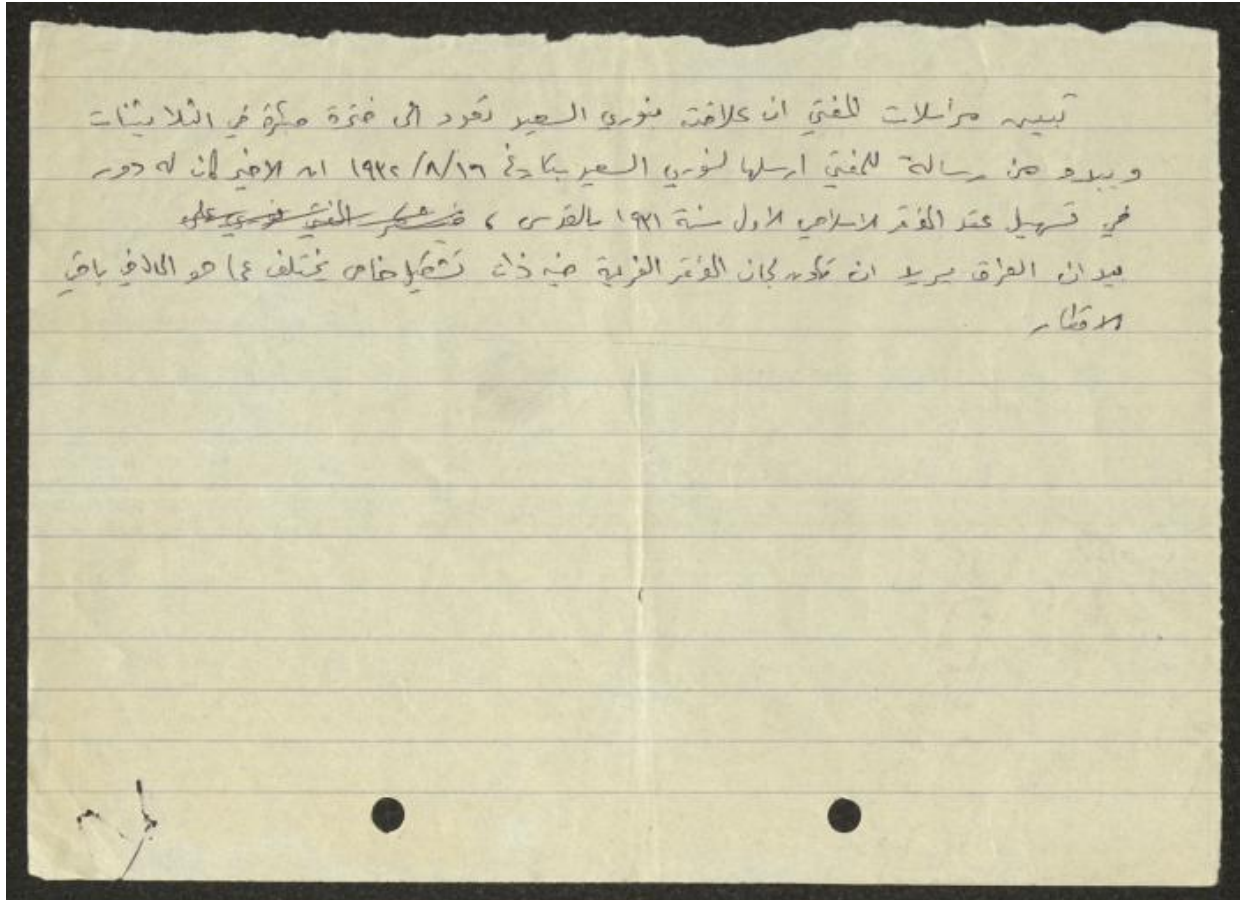 تبين مراسلات للمفتي ان علاقته بنوري السعيد تعود الى فترة مبكرة في الثلاثينات
ويبدو من رسالة للمفتي ارسلها لنوري السعيد بتاريخ ١٩٣٢/٨/١٦ ان الاخير كان له دور
في تسهيل عقد المؤتمر الاسلامي الاول سنة ١٩٣١ بالقدس ، المفتي نوري على
بيد ان العراق يريد ان تكون لجان المؤتمر الفرعية فيه ذات تشكيل خاص يختلف عما هو الحال في باقي
الاقطار